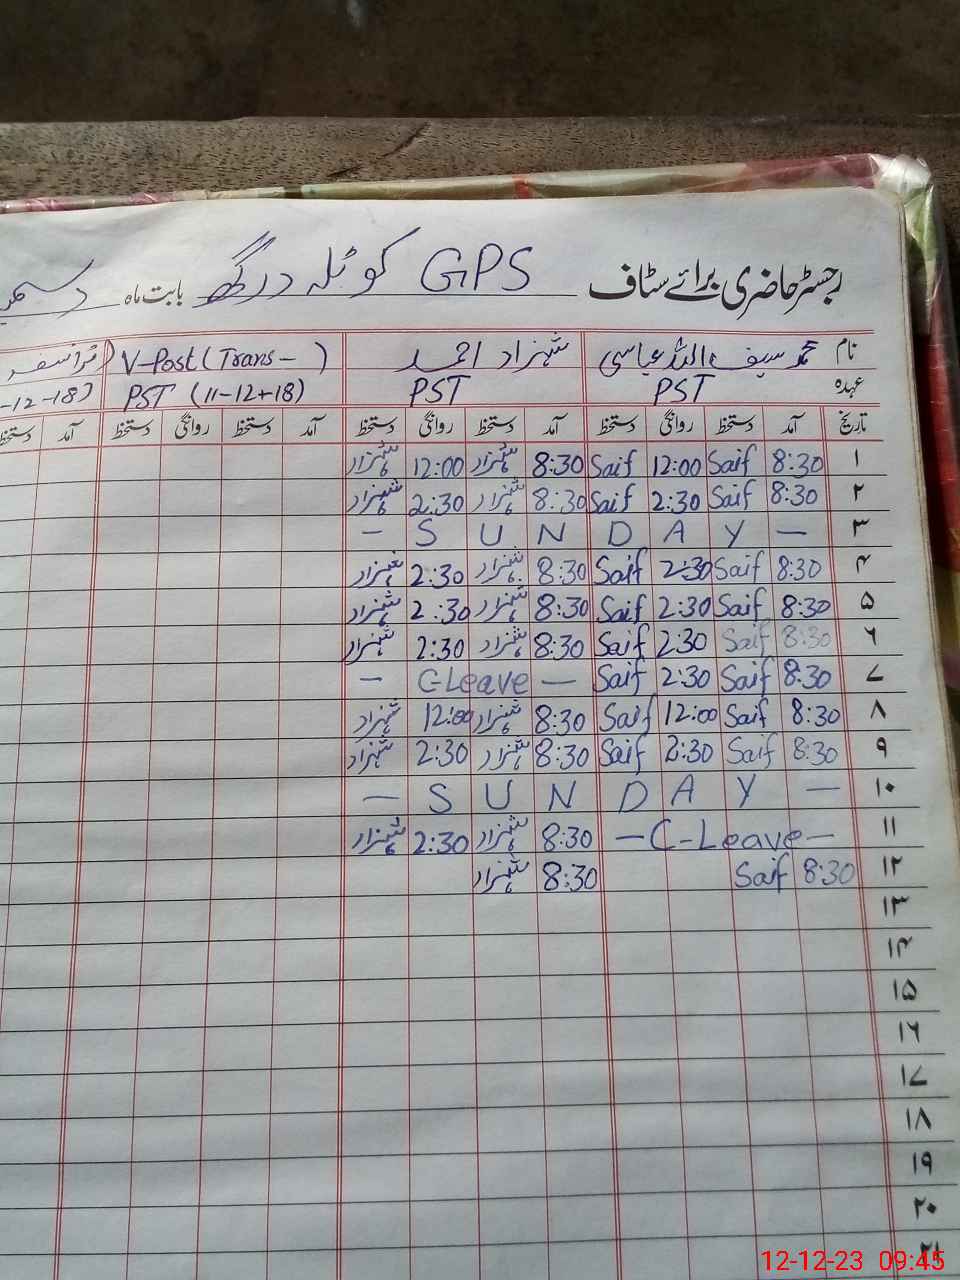 رجسٹر حاضری برائے سٹاف GPS کوٹلہ درگھ بابت ماہ دسمبر
نام محمد سیف اللہ عباسی شہزاد احمد V-Post (Trans-)
عہدہ PST PST PST (11-12-18) -12-18)
تاریخ آمد دستخط روانگی دستخط آمد دستخط روانگی دستخط آمد دستخط روانگی دستخط آمد دستخط
۱ 8:30 Saif 12:00 Saif 8:30 شہزاد 12:00 شہزاد
۲ 8:30 Saif 2:30 Saif 8:30 شہزاد 2:30 شہزاد
۳ - S U N D A Y -
۴ 8:30 Saif 2:30 Saif 8:30 شہزاد 2:30 شہزاد
۵ 8:30 Saif 2:30 Saif 8:30 شہزاد 2:30 شہزاد
۶ 8:30 Saif 2:30 Saif 8:30 شہزاد 2:30 شہزاد
۷ 8:30 Saif 2:30 Saif - C-Leave -
۸ 8:30 Saif 12:00 Saif 8:30 شہزاد 12:00 شہزاد
۹ 8:30 Saif 2:30 Saif 8:30 شہزاد 2:30 شہزاد
۱۰ - S U N D A Y -
۱۱ - C-Leave - 8:30 شہزاد 2:30 شہزاد
۱۲ 8:30 Saif 8:30 شہزاد
۱۳
۱۴
۱۵
۱۶
۱۷
۱۸
۱۹
۲۰
۲۱
12-12-23 09:45